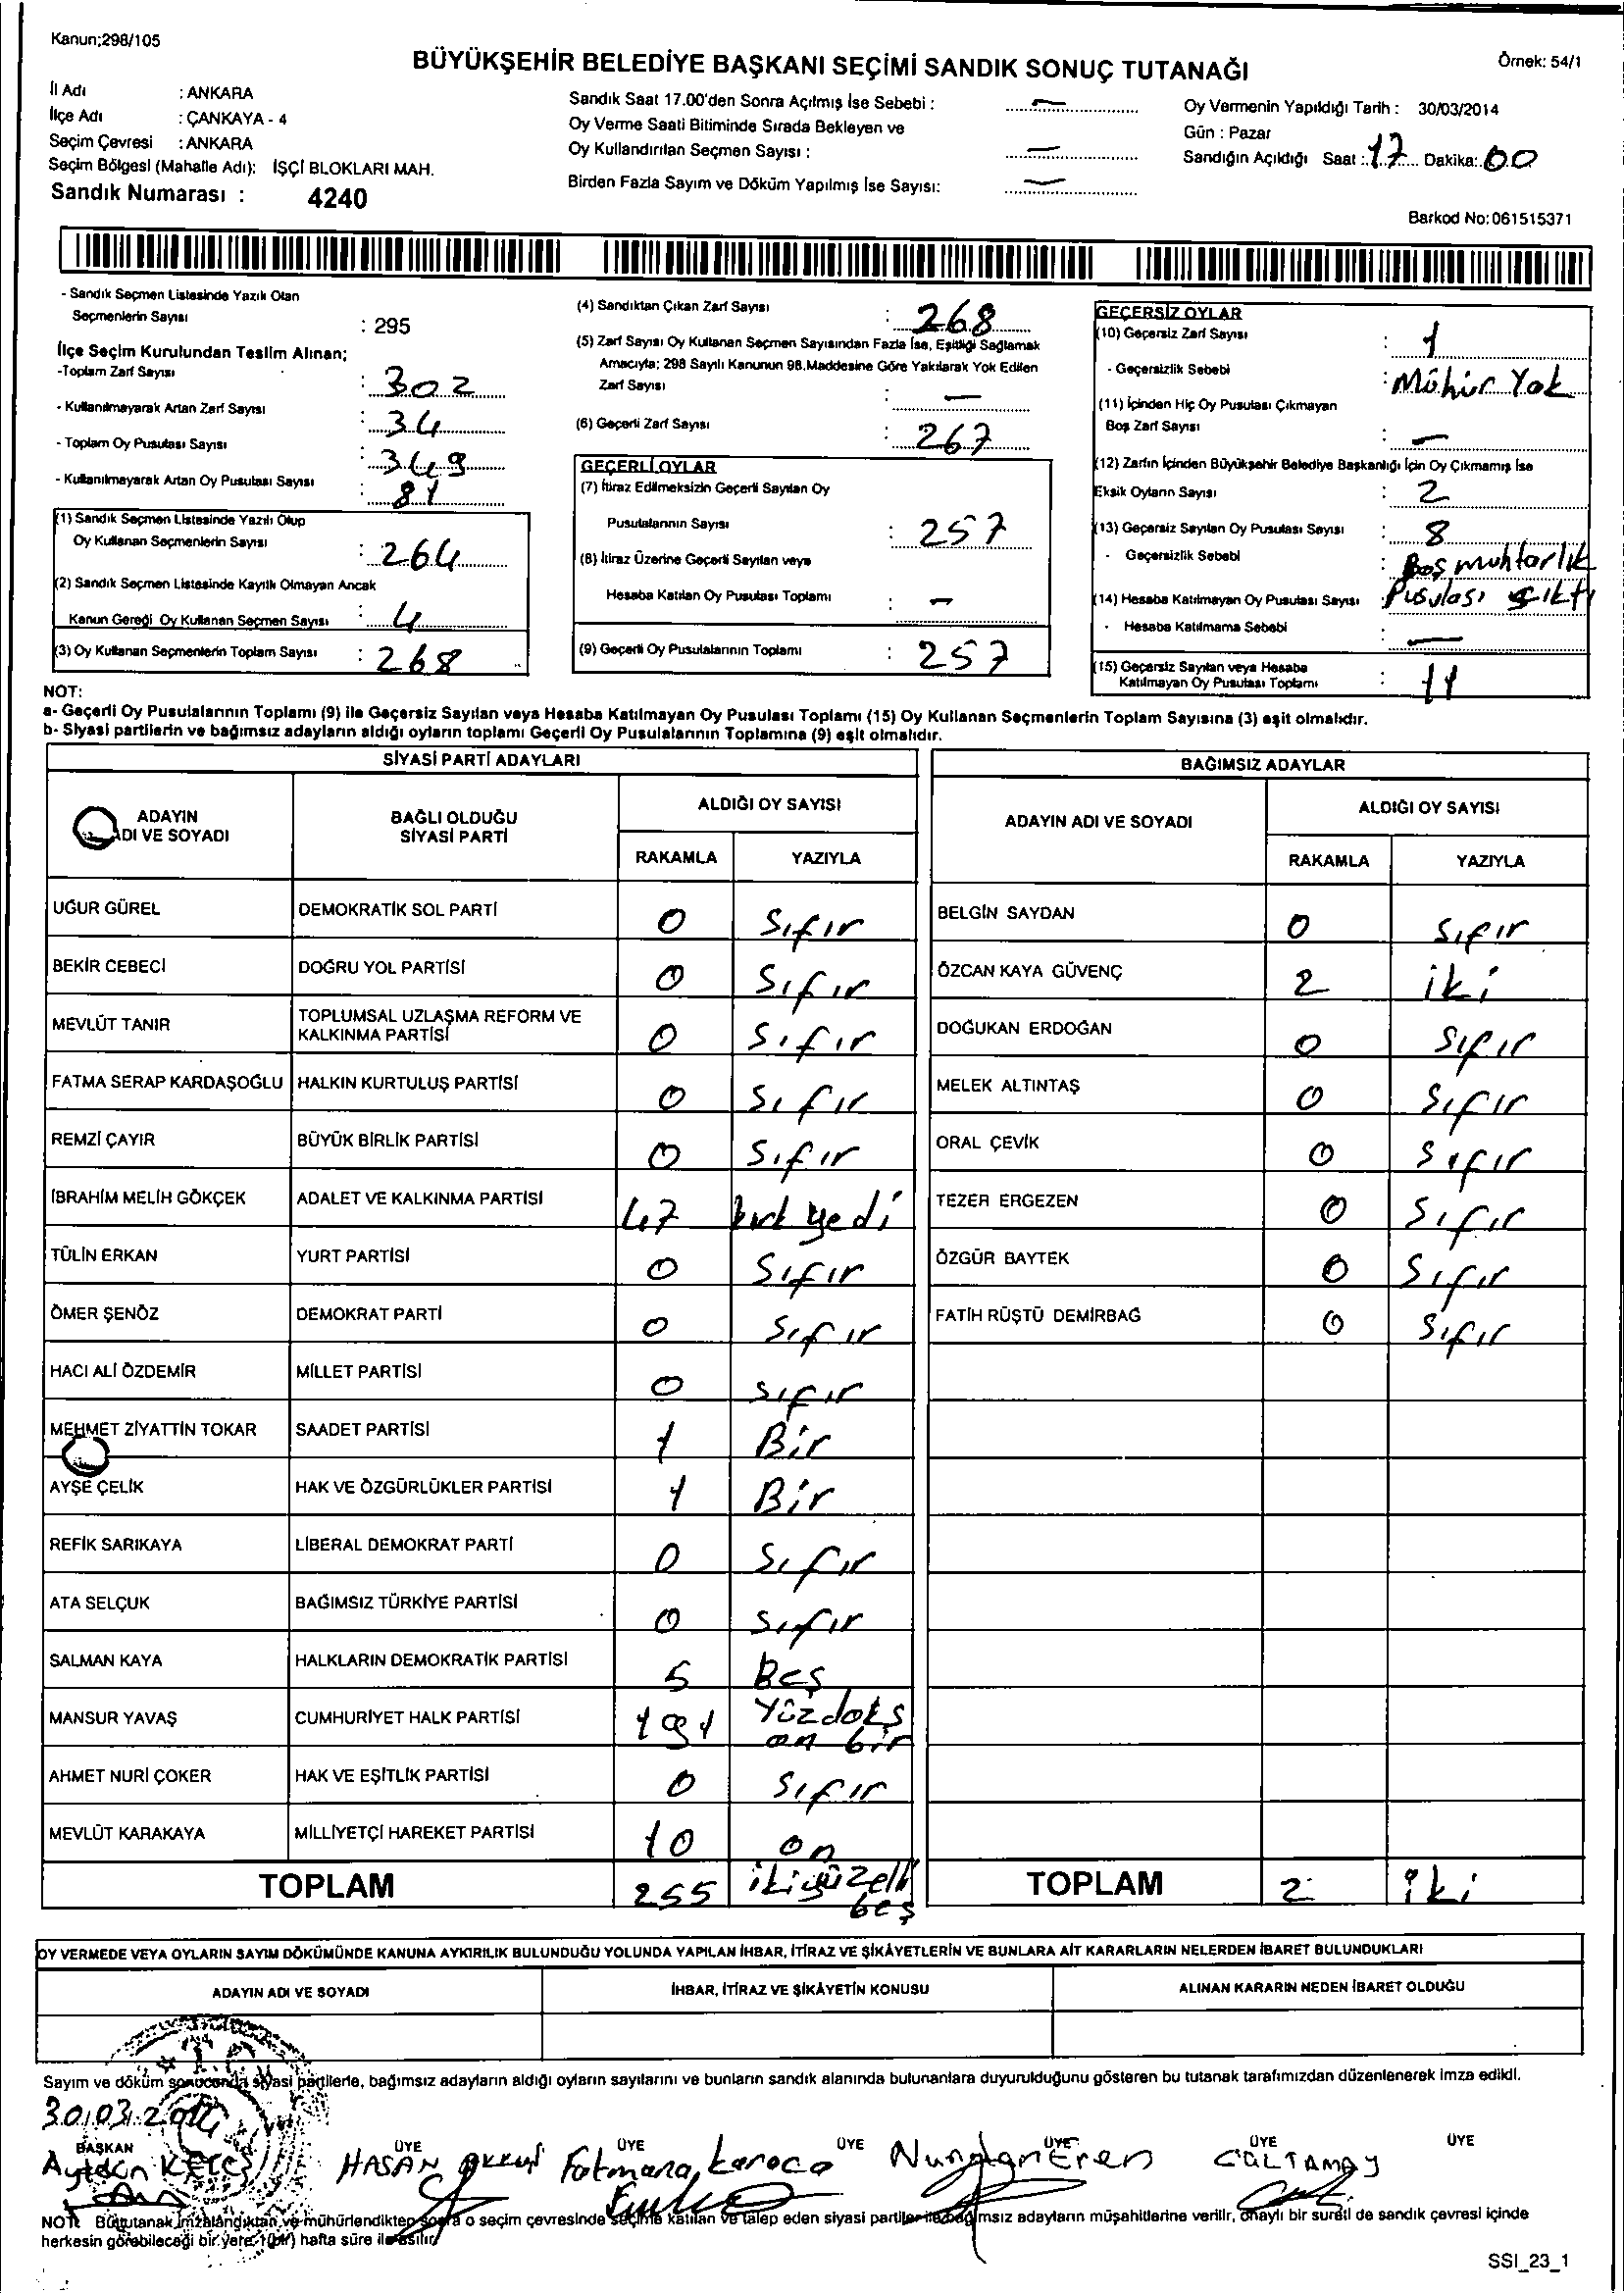 Kanun;298/105
BÜYÜKŞEHİR BELEDİYE BAŞKANI SEÇİMİ SANDIK SONUÇ TUTANAĞI
Örnek: 54/1
İl Adı : ANKARA
İlçe Adı : ÇANKAYA - 4
Seçim Çevresi : ANKARA
Seçim Bölgesi (Mahalle Adı): İŞÇİ BLOKLARI MAH.
Sandık Numarası : 4240
Sandık Saat 17.00'den Sonra Açılmış İse Sebebi : —
Oy Verme Saati Bitiminde Sırada Bekleyen ve
Oy Kullandırılan Seçmen Sayısı : —
Birden Fazla Sayım ve Döküm Yapılmış İse Sayısı: —
Oy Vermenin Yapıldığı Tarih : 30/03/2014
Gün : Pazar
Sandığın Açıldığı Saat : 17 Dakika: 00
Barkod No: 061515371
- Sandık Seçmen Listesinde Yazılı Olan
Seçmenlerin Sayısı : 295
İlçe Seçim Kurulundan Teslim Alınan;
-Toplam Zarf Sayısı : 302
- Kullanılmayarak Artan Zarf Sayısı : 34
- Toplam Oy Pusulası Sayısı : 349
- Kullanılmayarak Artan Oy Pusulası Sayısı : 81
(1) Sandık Seçmen Listesinde Yazılı Olup
Oy Kullanan Seçmenlerin Sayısı : 264
(2) Sandık Seçmen Listesinde Kayıtlı Olmayan Ancak
Kanun Gereği Oy Kullanan Seçmen Sayısı : 4
(3) Oy Kullanan Seçmenlerin Toplam Sayısı : 268
(4) Sandıktan Çıkan Zarf Sayısı : 268
(5) Zarf Sayısı Oy Kullanan Seçmen Sayısından Fazla İse, Eşitliği Sağlamak
Amacıyla; 298 Sayılı Kanunun 98.Maddesine Göre Yakılarak Yok Edilen
Zarf Sayısı : —
(6) Geçerli Zarf Sayısı : 267
GEÇERLİ OYLAR
(7) İtiraz Edilmeksizin Geçerli Sayılan Oy
Pusulalarının Sayısı : 257
(8) İtiraz Üzerine Geçerli Sayılan veya
Hesaba Katılan Oy Pusulası Toplamı : —
(9) Geçerli Oy Pusulalarının Toplamı : 257
GEÇERSİZ OYLAR
(10) Geçersiz Zarf Sayısı : 1
- Geçersizlik Sebebi : Mühür Yok
(11) İçinden Hiç Oy Pusulası Çıkmayan
Boş Zarf Sayısı : —
(12) Zarfın İçinden Büyükşehir Belediye Başkanlığı İçin Oy Çıkmamış İse
Eksik Oyların Sayısı : 2
(13) Geçersiz Sayılan Oy Pusulası Sayısı : 8
- Geçersizlik Sebebi : Boş muhtarlık
Pusulası çıktı
(14) Hesaba Katılmayan Oy Pusulası Sayısı :
- Hesaba Katılmama Sebebi : —
(15) Geçersiz Sayılan veya Hesaba
Katılmayan Oy Pusulası Toplamı : 11
NOT:
a- Geçerli Oy Pusulalarının Toplamı (9) ile Geçersiz Sayılan veya Hesaba Katılmayan Oy Pusulası Toplamı (15) Oy Kullanan Seçmenlerin Toplam Sayısına (3) eşit olmalıdır.
b- Siyasi partilerin ve bağımsız adayların aldığı oyların toplamı Geçerli Oy Pusulalarının Toplamına (9) eşit olmalıdır.
SİYASİ PARTİ ADAYLARI
ADAYIN ADI VE SOYADI BAĞLI OLDUĞU SİYASİ PARTİ ALDIĞI OY SAYISI
RAKAMLA YAZIYLA
UĞUR GÜREL DEMOKRATİK SOL PARTİ 0 Sıfır
BEKİR CEBECİ DOĞRU YOL PARTİSİ 0 Sıfır
MEVLÜT TANIR TOPLUMSAL UZLAŞMA REFORM VE KALKINMA PARTİSİ 0 Sıfır
FATMA SERAP KARDAŞOĞLU HALKIN KURTULUŞ PARTİSİ 0 Sıfır
REMZİ ÇAYIR BÜYÜK BİRLİK PARTİSİ 0 Sıfır
İBRAHİM MELİH GÖKÇEK ADALET VE KALKINMA PARTİSİ 47 kırk yedi
TÜLİN ERKAN YURT PARTİSİ 0 Sıfır
ÖMER ŞENÖZ DEMOKRAT PARTİ 0 Sıfır
HACI ALİ ÖZDEMİR MİLLET PARTİSİ 0 Sıfır
MEHMET ZİYATTİN TOKAR SAADET PARTİSİ 1 Bir
AYŞE ÇELİK HAK VE ÖZGÜRLÜKLER PARTİSİ 1 Bir
REFİK SARIKAYA LİBERAL DEMOKRAT PARTİ 0 Sıfır
ATA SELÇUK BAĞIMSIZ TÜRKİYE PARTİSİ 0 Sıfır
SALMAN KAYA HALKLARIN DEMOKRATİK PARTİSİ 5 Beş
MANSUR YAVAŞ CUMHURİYET HALK PARTİSİ 191 Yüzdoks an bir
AHMET NURİ ÇOKER HAK VE EŞİTLİK PARTİSİ 0 Sıfır
MEVLÜT KARAKAYA MİLLİYETÇİ HAREKET PARTİSİ 10 on
TOPLAM 255 ikiyüzelli beş
BAĞIMSIZ ADAYLAR
ADAYIN ADI VE SOYADI ALDIĞI OY SAYISI
RAKAMLA YAZIYLA
BELGİN SAYDAN 0 Sıfır
ÖZCAN KAYA GÜVENÇ 2 iki
DOĞUKAN ERDOĞAN 0 Sıfır
MELEK ALTINTAŞ 0 Sıfır
ORAL ÇEVİK 0 Sıfır
TEZER ERGEZEN 0 Sıfır
ÖZGÜR BAYTEK 0 Sıfır
FATİH RÜŞTÜ DEMİRBAĞ 0 Sıfır
TOPLAM 2 iki
OY VERMEDE VEYA OYLARIN SAYIM DÖKÜMÜNDE KANUNA AYKIRILIK BULUNDUĞU YOLUNDA YAPILAN İHBAR, İTİRAZ VE ŞİKÂYETLERİN VE BUNLARA AİT KARARLARIN NELERDEN İBARET BULUNDUKLARI
ADAYIN ADI VE SOYADI İHBAR, İTİRAZ VE ŞİKÂYETİN KONUSU ALINAN KARARIN NEDEN İBARET OLDUĞU
T.C.
Sayım ve döküm sonucunda siyasi partilerle, bağımsız adayların aldığı oyların sayılarını ve bunların sandık alanında bulunanlara duyurulduğunu gösteren bu tutanak tarafımızdan düzenlenerek imza edildi.
30.03.2014
BAŞKAN ÜYE ÜYE ÜYE ÜYE ÜYE ÜYE
HASAN Fatmana Karaca Nurgan Eren
NOT: Bu tutanak imzalandıktan ve mühürlendikten sonra o seçim çevresinde seçime katılan ve talep eden siyasi partiler ile bağımsız adayların müşahitlerine verilir, onaylı bir sureti de sandık çevresi içinde
herkesin görebileceği bir yere 1 (bir) hafta süre ile asılır.
SSI_23_1